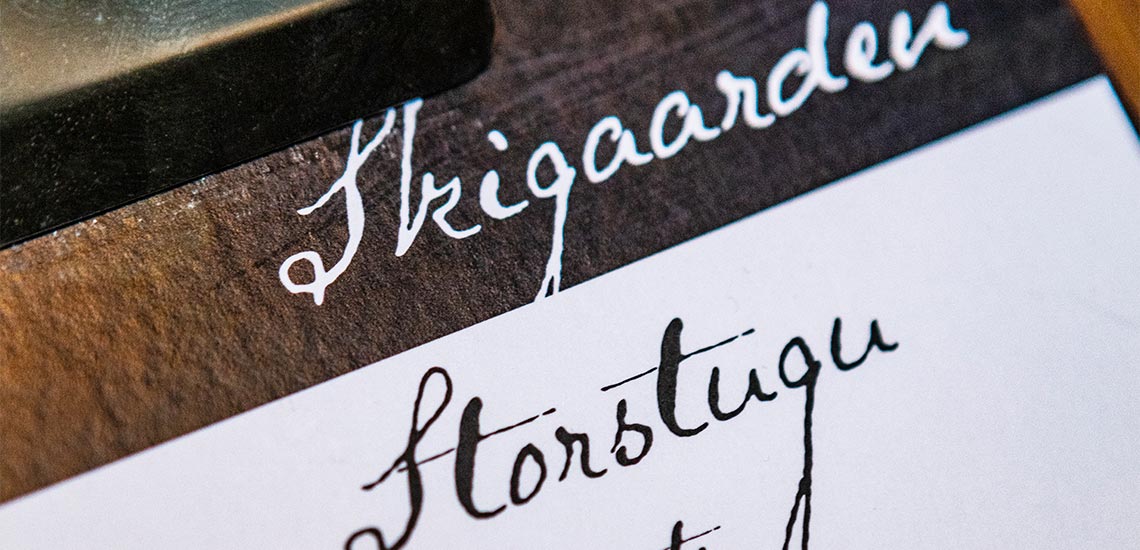 Skigaarden
Storstugu